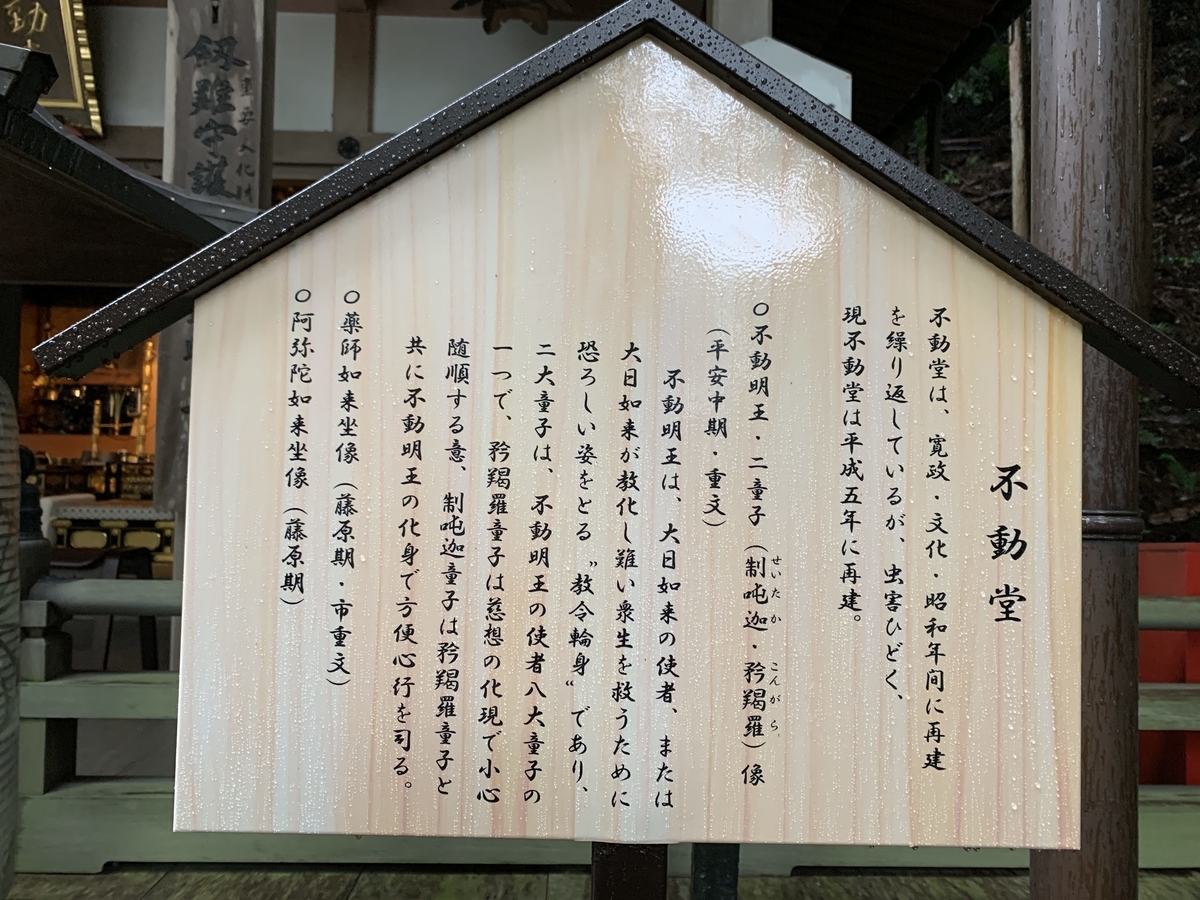 不動堂
不動堂は、寛政・文化・昭和年间に再建
を繰り返しているが、虫害ひどく、
現不動堂は平成五年に再建。
○不動明王・二童子（制吒迦・矜羯羅）像
せいたか
こんがら
（平安中期・重文）
不動明王は、大日如来の使者、または
大日如来が教化し難い衆生を救うために
恐ろしい姿をとる〝教令輪身〟であり、
二大童子は、不動明王の使者八大童子の
一つで、矜羯羅童子は慈想の化現で小心
随順する意、制吒迦童子は矜羯羅童子と
共に不動明王の化身で方便心行を司る。
○薬師如来坐像（藤原期・市重文）
○阿弥陀如来坐像（藤原期）